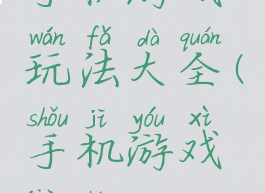 wán fǎ dà quán
玩法大全(
shǒu jī yóu xì
手机游戏